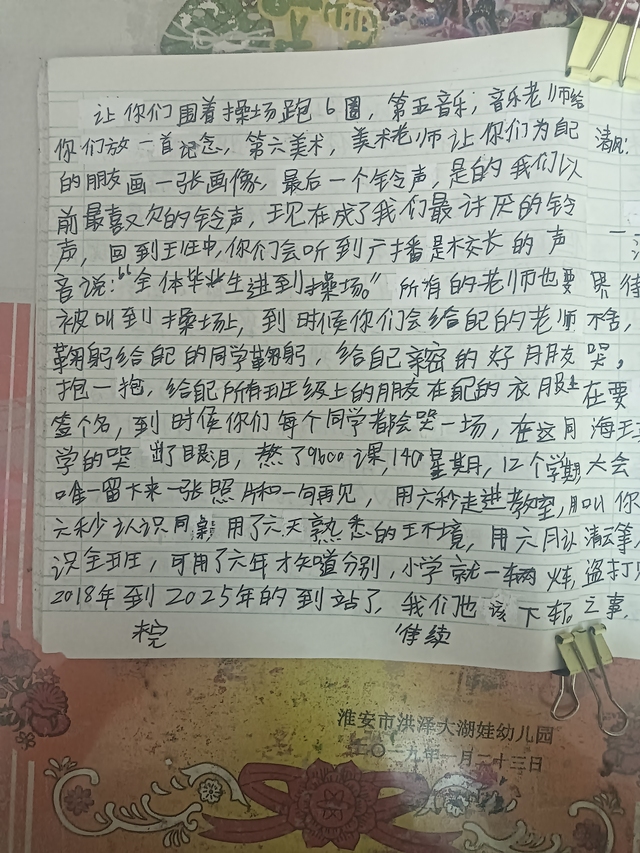 让你们围着操场跑6圈，第五音乐；音乐老师给
你们放一首记念，第六美术，美术老师让你们为自己
的朋友画一张画像，最后一个铃声，是的我们以
前最喜欢的铃声，现在成了我们最讨厌的铃
声，回到班中，你们会听到广播是校长的声
音说：“全体毕业生进到操场。”所有的老师也要
被叫到操场上，到时候你们会给自己的老师
鞠躬给自己的同学鞠躬，给自己亲密的好朋友
抱一抱，给自己所有班级上的朋友在自己的衣服上
签个名，到时候你们每个同学都会哭一场，在这同
学的哭 断了眼泪，熬了9600课，140星期，12个学期
唯一留下来一张照片和一句再见，用六秒走进教室，用
六秒认识同桌 用了六天熟悉的环境，用六月认
识全班，可用了六年才知道分别，小学就一辆火车，
2018年到2025年的到站了，我们也该下车了。
未完
待续
清风：
不舍，
哭，
在要
海王
六会
叫你
清云等
盗打
之事，
淮安市洪泽大湖娃幼儿园
二〇一九年一月二十三日